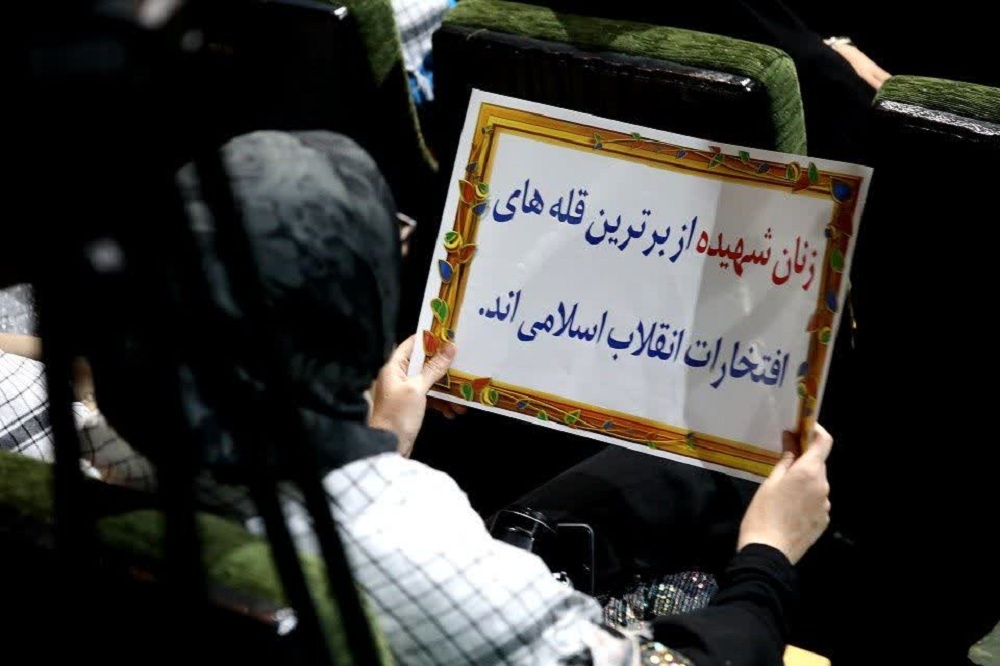 زنان شهیده از برترین قله های
افتخارات انقلاب اسلامی اند.